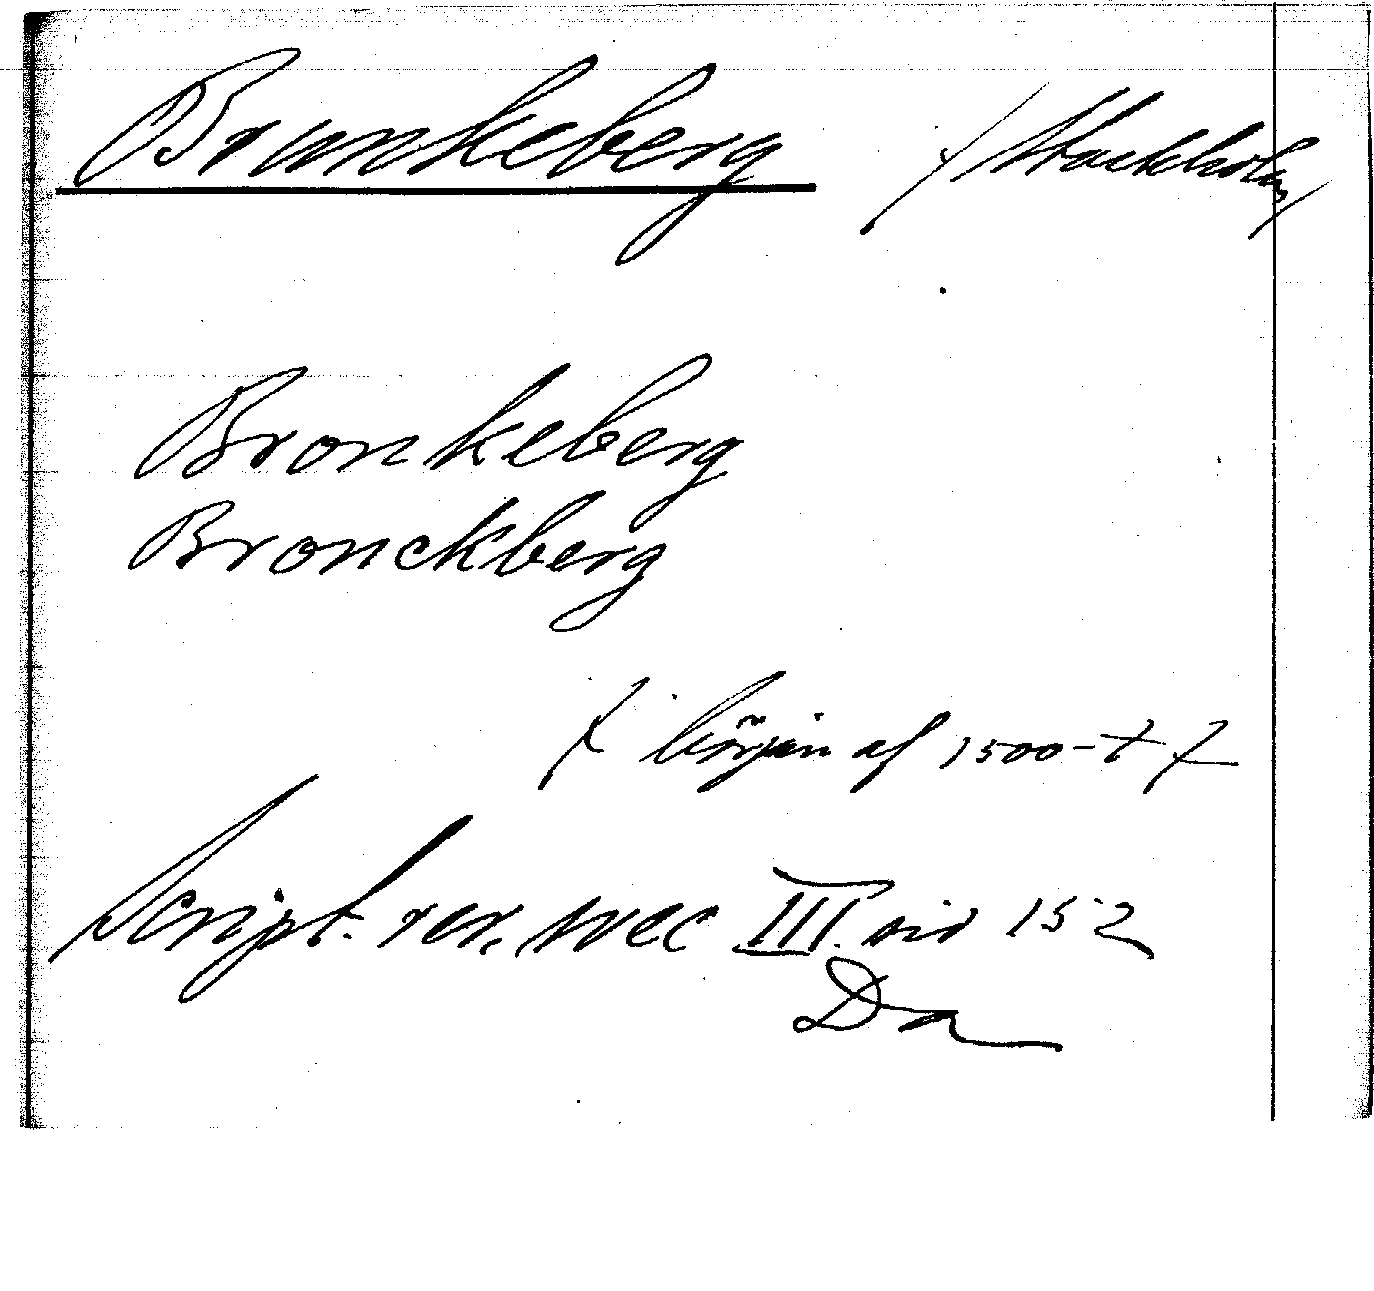 Brunkeberg /Stockholm/
Bronkeberg
Bronckberg
/ början af 1500-t /
Script. rer. svec III. sid 152
Da